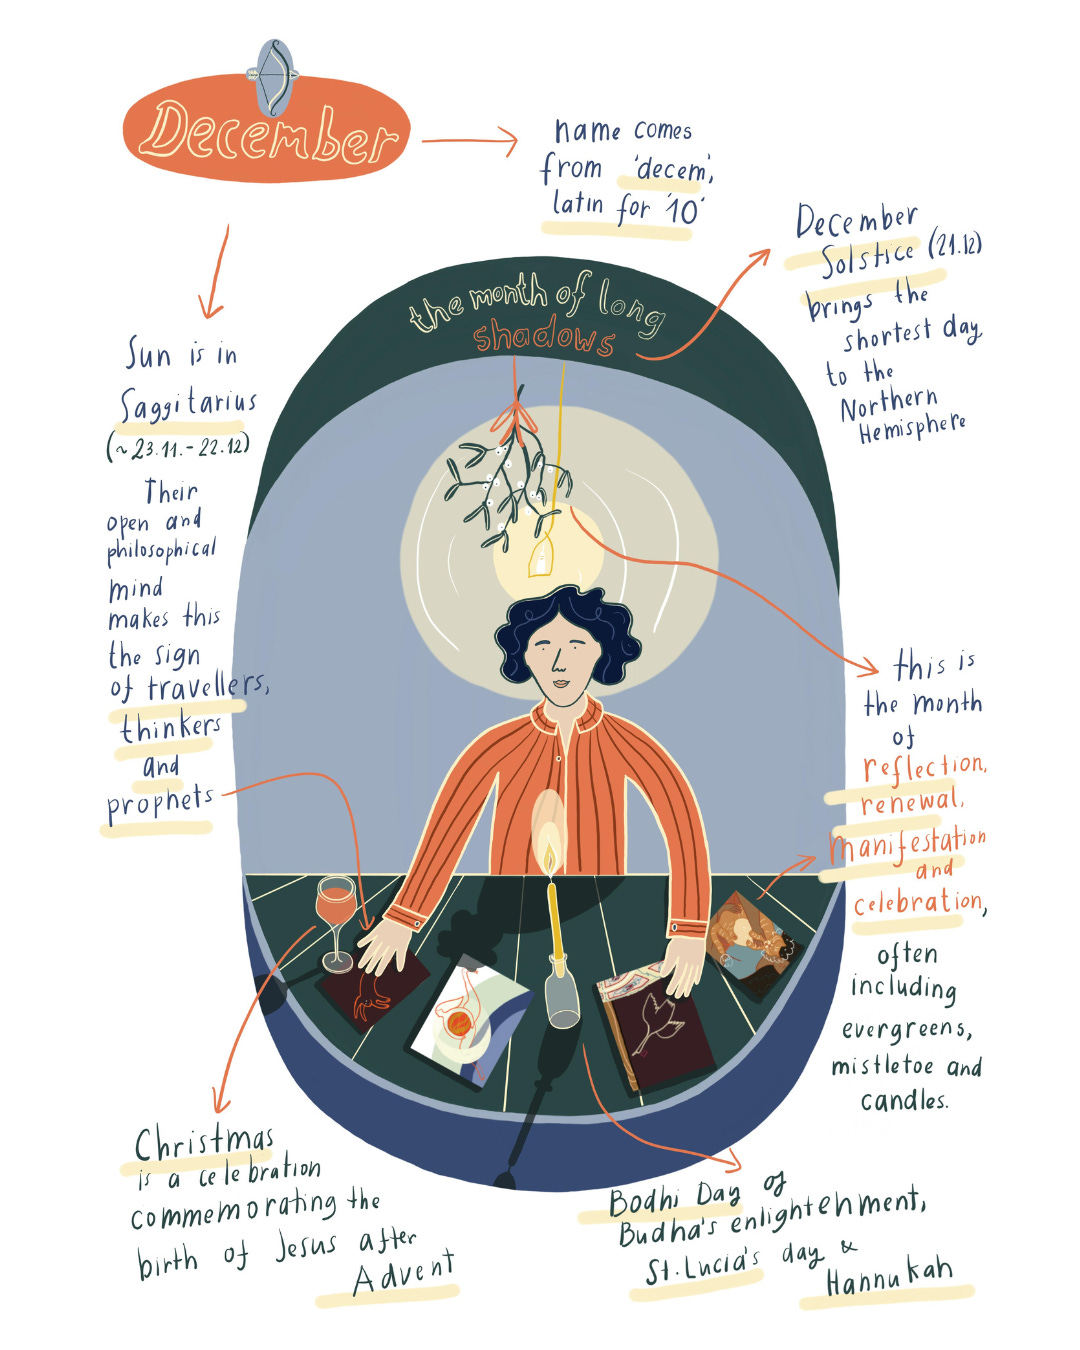 December
name comes
from 'decem',
latin for '10'
the month of long
shadows
December
Solstice (21.12)
brings the
shortest day
to the
Northern
Hemisphere
Sun is in
Saggitarius
(~23.11.-22.12)
Their
open and
philosophical
mind
makes this
the sign
of travellers,
thinkers
and
prophets
this is
the month
of
reflection,
renewal,
manifestation
and
celebration,
often
including
evergreens,
mistletoe and
candles.
Christmas
is a celebration
commemorating the
birth of Jesus after
Advent
Bodhi Day of
Budha's enlightehment,
St. Lucia's day &
Hannukah